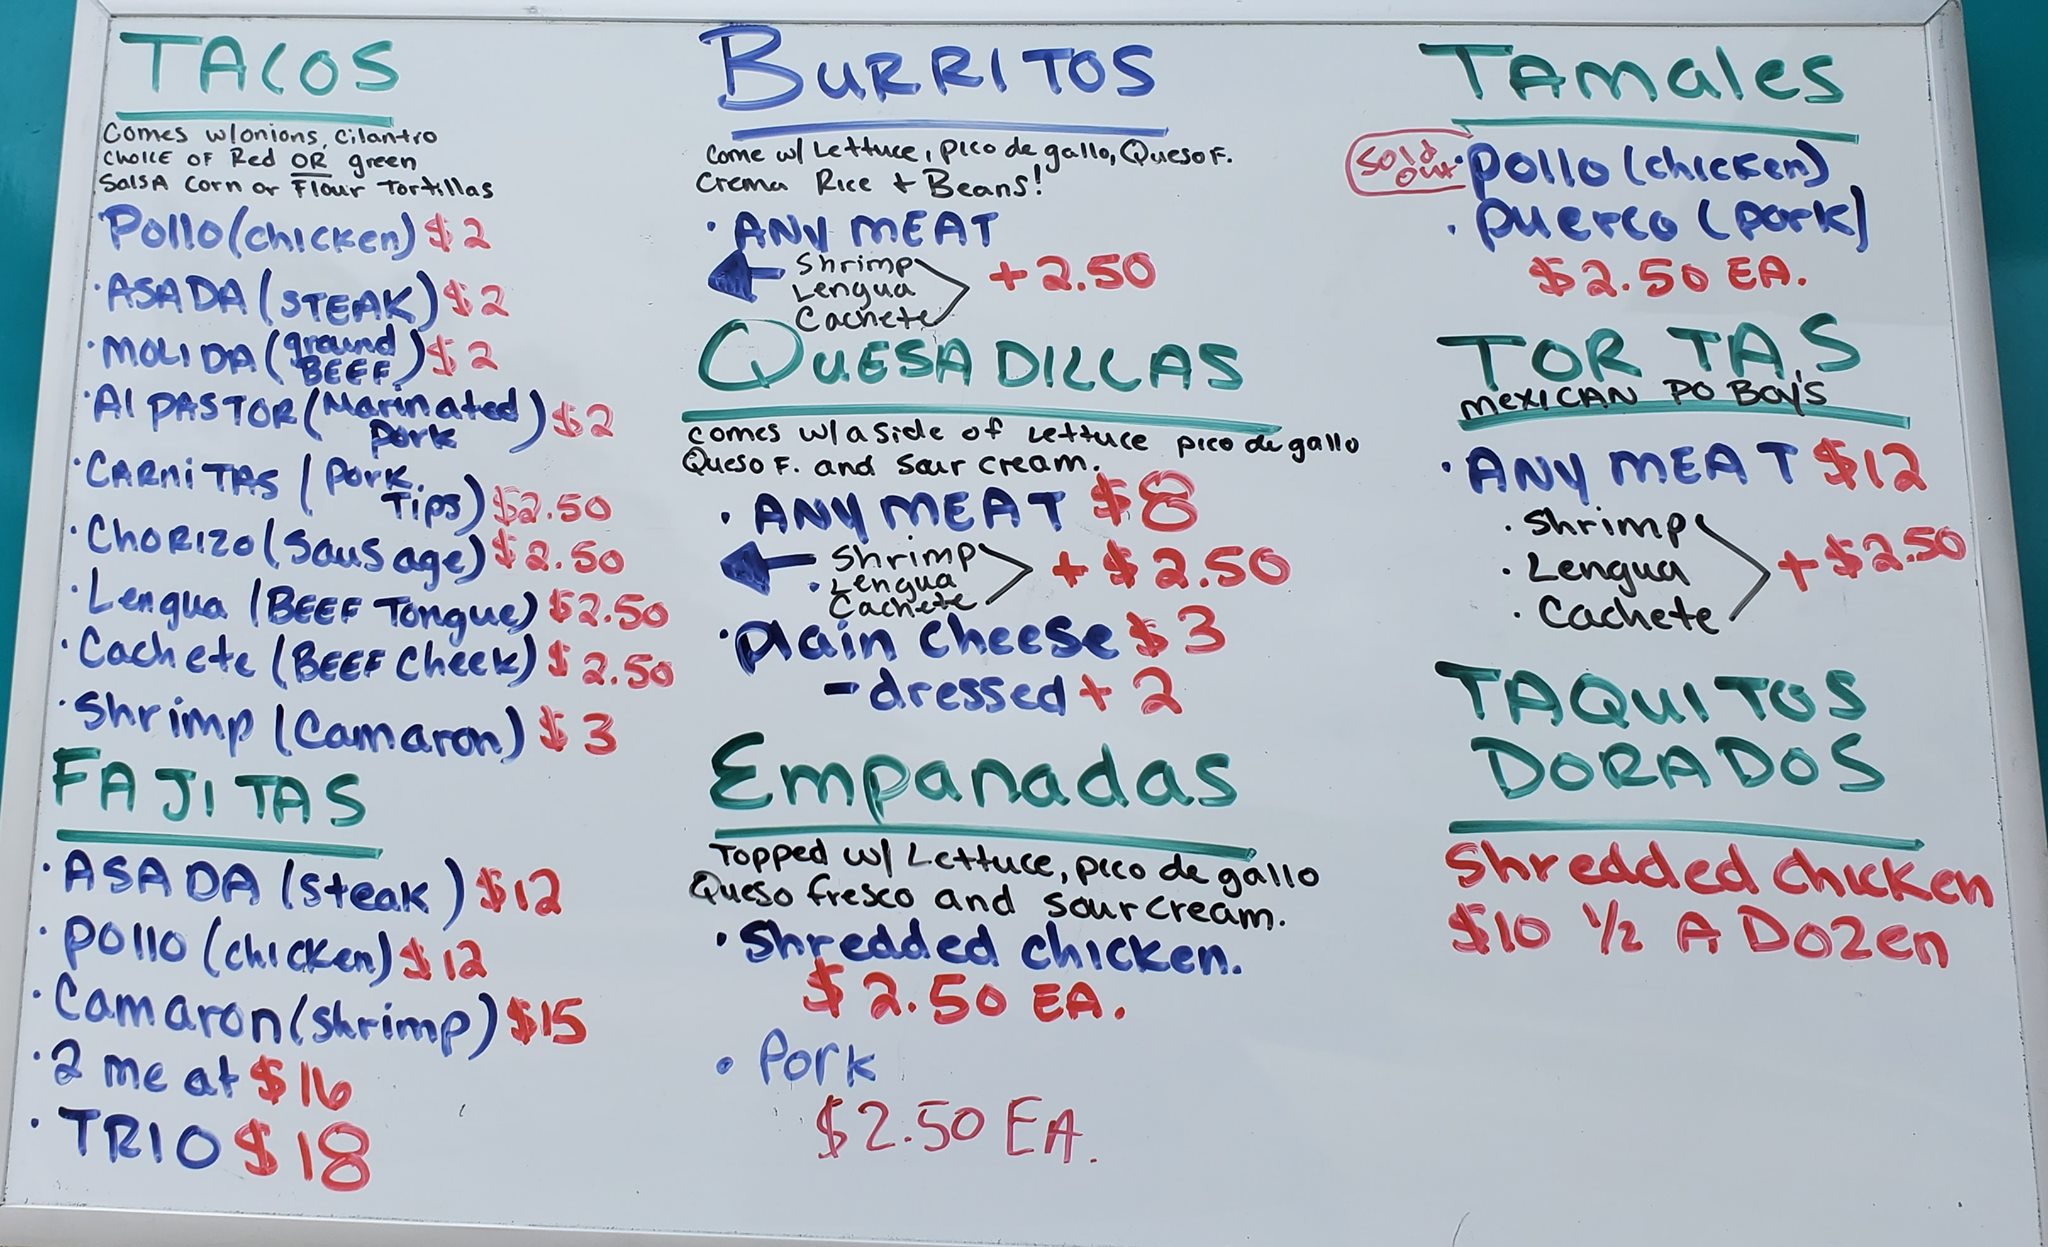 TACOS
Comes w/onions, cilantro
CHOICE OF Red OR green
SalsA Corn or Flour Tortillas
Pollo (chicken) $2
·ASADA (STEAK) $2
·MOLIDA (ground BEEF) $2
·Al PASTOR (Marinated Pork) $2
·CARNITAS (Pork Tips) $2.50
·Chorizo (Sausage) $2.50
·Lengua (BEEF Tongue) $2.50
·Cachete (BEEF Cheek) $2.50
·Shrimp (Camaron) $3
FAJITAS
·ASADA (steak) $12
·Pollo (chicken) $12
·Camaron (shrimp) $15
·2 meat $16
·TRIO $18
BURRITOS
Come w/ Lettuce, pico de gallo, Queso F.
Crema Rice + Beans!
·ANY MEAT
Shrimp
Lengua
Cachete
+2.50
QUESADILLAS
comes w/a side of Lettuce pico de gallo
Queso F. and Sour cream.
·ANY MEAT $8
Shrimp
·Lengua
Cachete
+$2.50
·plain cheese $3
-dressed +2
Empanadas
Topped w/ Lettuce, pico de gallo
Queso fresco and sour cream.
·Shredded chicken.
$2.50 EA.
·Pork
$2.50 EA.
Tamales
Sold out
·pollo (chicken)
·puerco (pork)
$2.50 EA.
TORTAS
mexICAN PO BOY'S
·ANY MEAT $12
·Shrimp
·Lengua
·Cachete
+$2.50
TAQUITOS
DORADOS
Shredded Chicken
$10 1/2 A Dozen